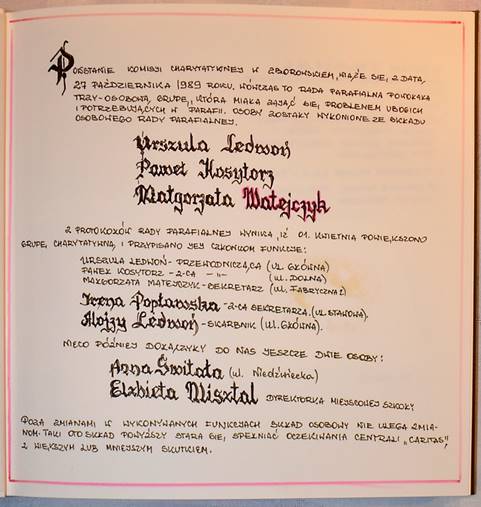 POWSTANIE KOMISJI CHARYTATYWNEJ W ZBOROWSKIEM, WIĄŻE SIĘ Z DATĄ,
27 PAŹDZIERNIKA 1989 ROKU. WÓWCZAS TO RADA PARAFIALNA POWOŁAŁA
TRZY-OSOBOWĄ GRUPĘ, KTÓRA MIAŁA ZAJĄĆ SIĘ PROBLEMEM UBOGICH
I POTRZEBUJĄCYCH W PARAFII. OSOBY ZOSTAŁY WYŁONIONE ZE SKŁADU
OSOBOWEGO RADY PARAFIALNEJ.
Urszula Ledwoń
Paweł Kosytorz
Małgorzata Matejczyk
Z PROTOKOŁÓW RADY PARAFIALNEJ WYNIKA, IŻ 01. KWIETNIA POWIĘKSZONO
GRUPĘ CHARYTATYWNĄ, I PRZYPISANO JEJ CZŁONKOM FUNKCJE:
URSZULA LEDWOŃ - PRZEWODNICZĄCA (UL. GŁÓWNA)
PAWEŁ KOSYTORZ - Z-CA - „- (UL. DOLNA)
MAŁGORZATA MATEJCZYK - SEKRETARZ (UL. FABRYCZNA)
Irena Popławska - Z-CA SEKRETARZA. (UL. STAWOWA).
Alojzy Ledwoń - SKARBNIK (UL. GŁÓWNA).
NIECO PÓŹNIEJ DOŁĄCZYŁY DO NAS JESZCZE DWIE OSOBY:
Anna Świtała (ul. Niedźwiecka)
Elżbieta Misztal DYREKTORKA MIEJSCOWEJ SZKOŁY
POZA ZMIANAMI W WYKONYWANYCH FUNKCJACH SKŁAD OSOBOWY NIE ULEGA ZMIA-
NOM. TAKI OTO SKŁAD POWYŻSZY STARA SIĘ, SPEŁNIAĆ OCZEKIWANIA CENTRALI „CARITAS",
Z WIĘKSZYM LUB MNIEJSZYM SKUTKIEM.